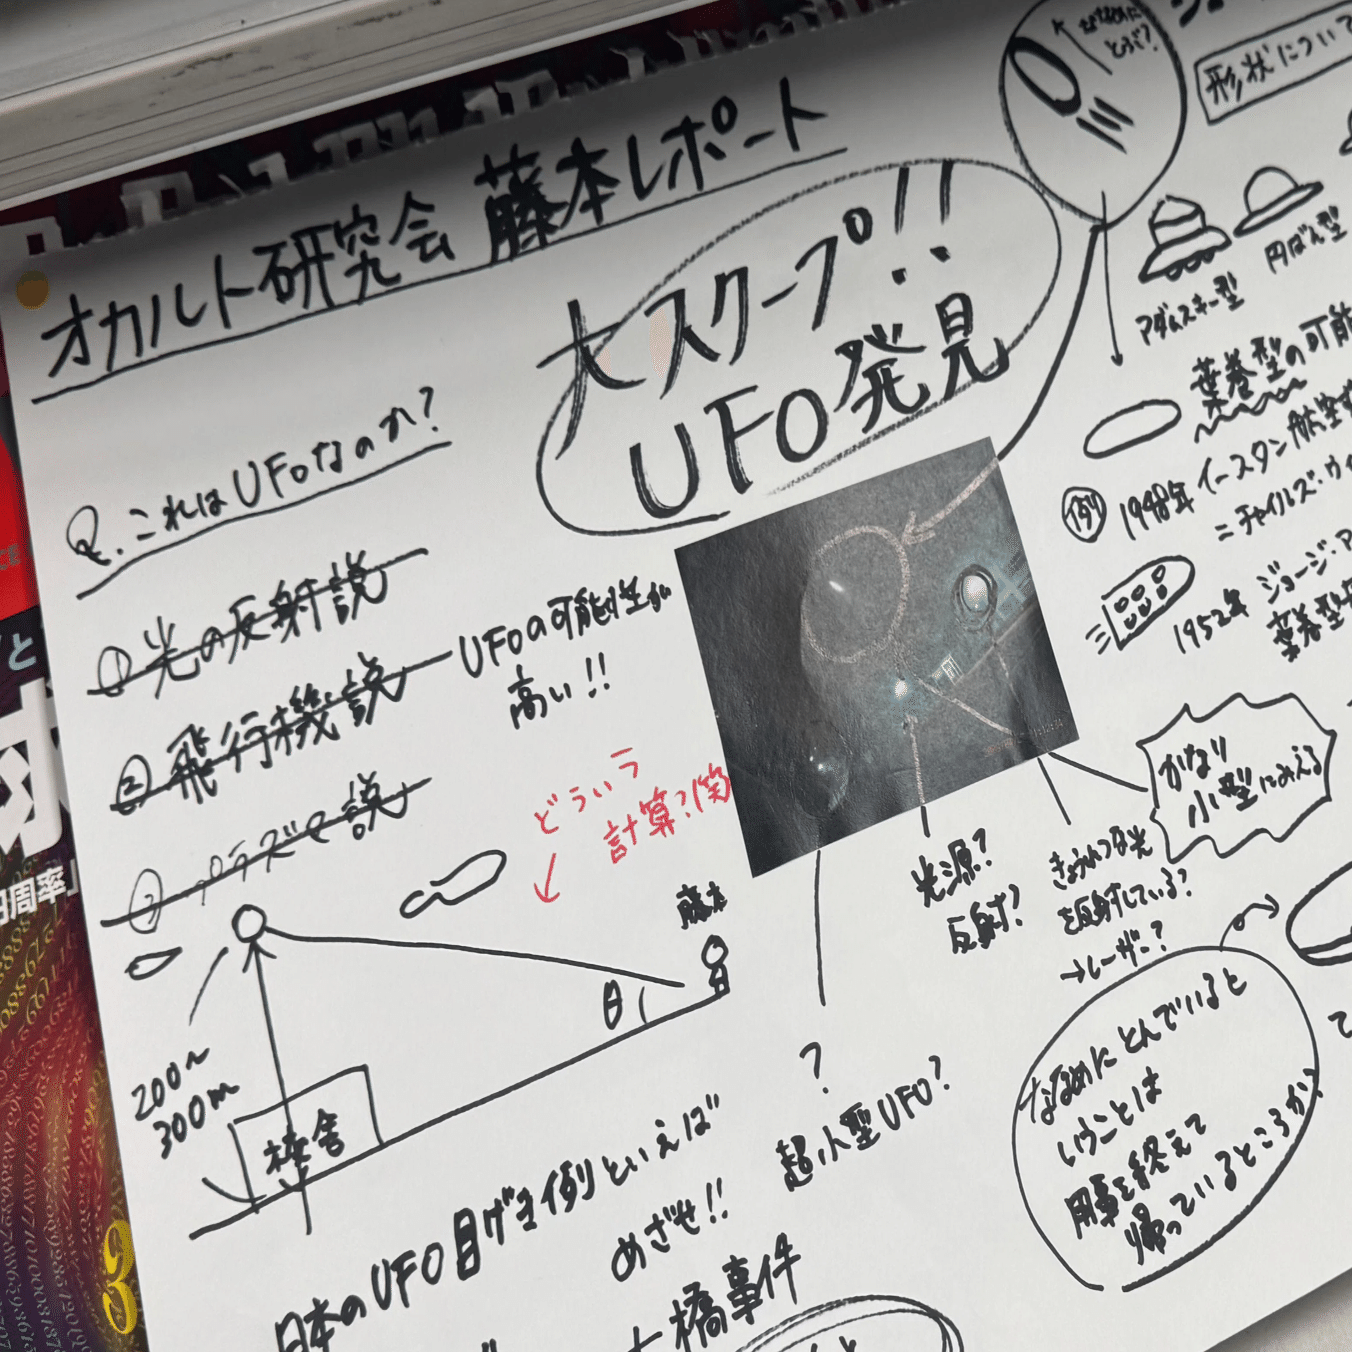 オカルト研究会 藤本レポート
大スクープ!!
UFO発見
Q.これはUFOなのか?
①光の反射説
②飛行機説
UFOの可能性が
高い!!
③プラズマ説
どういう
計算?(笑
藤本
θ
200〜
300m
校舎
日本のUFO目げき例といえば
めざせ!!
橋事件
ななめに
とぶ?
形状について
アダムスキー型
円ばん型
葉巻型の可能
例
1948年 イースタン航空
=チャイルズ・ウィ
1952年 ジョージ・ア
葉巻型
かなり
小型にみえる
光源?
反射?
きょうれつな光
を反射している?
→レーザー?
?
超小型UFO?
ななめにとんでいると
いうことは
用事を終えて
帰っているところか?
と
周率」
3